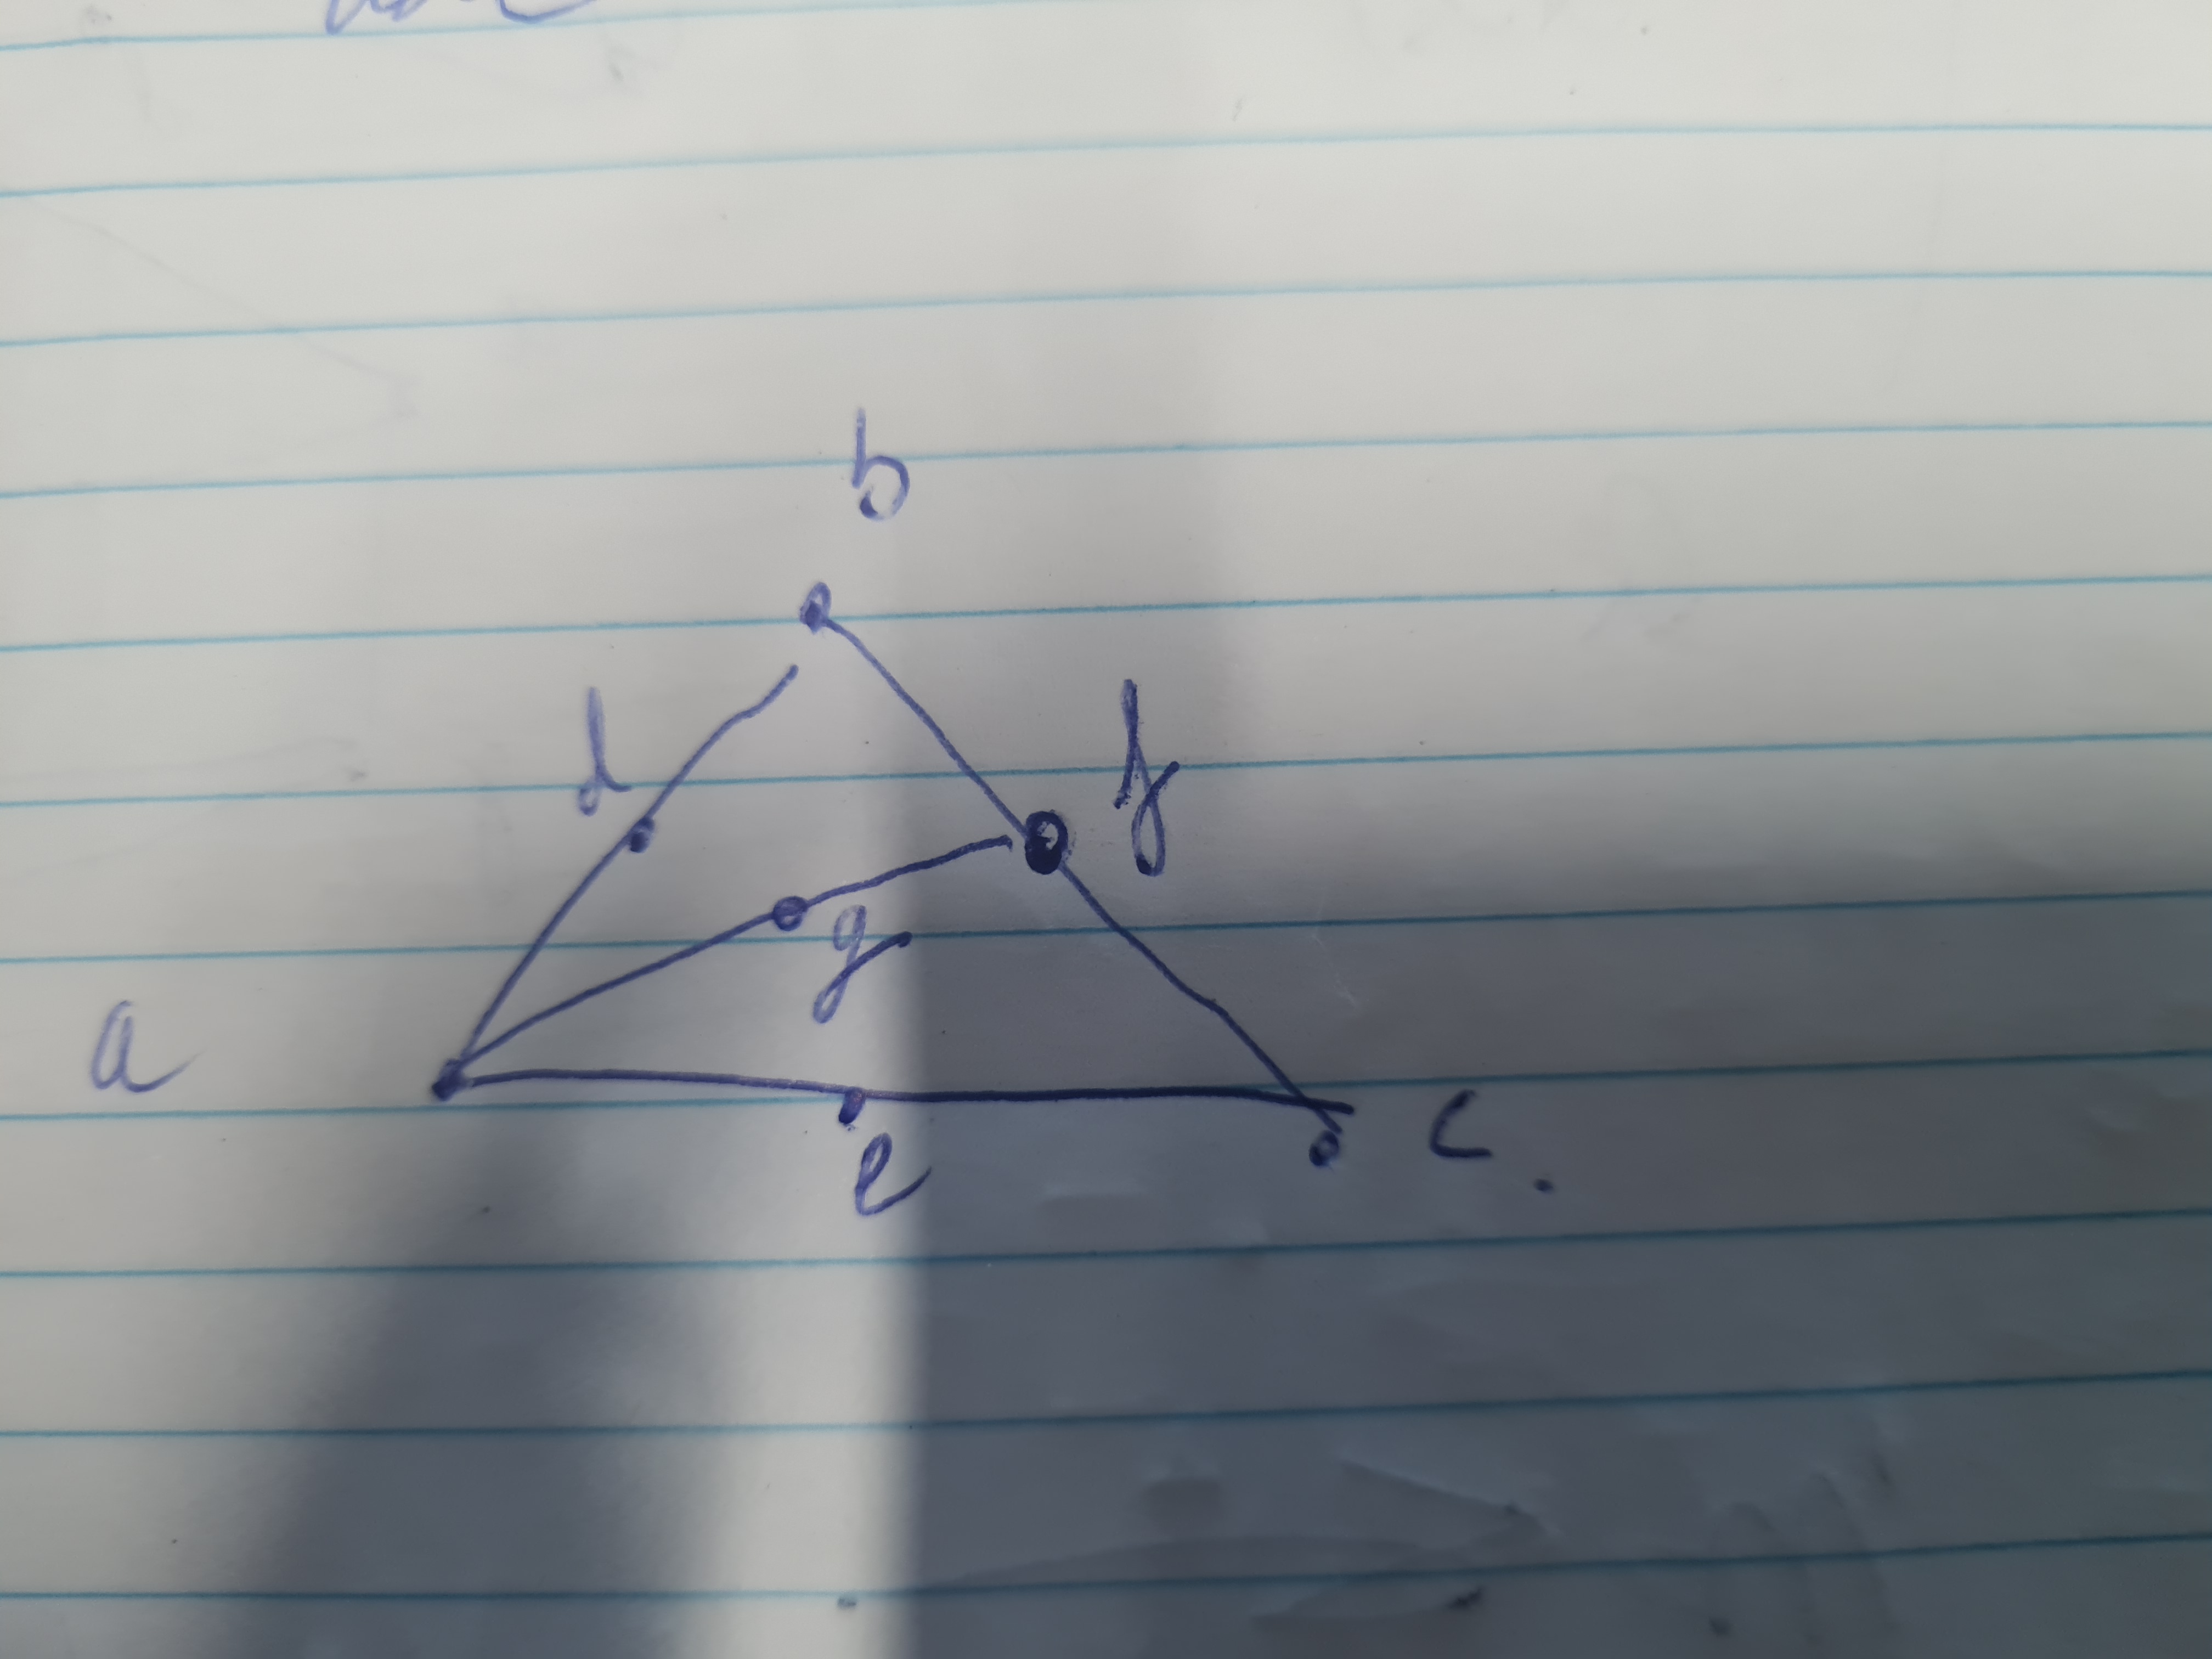 b
d
f
g
a
e
c.